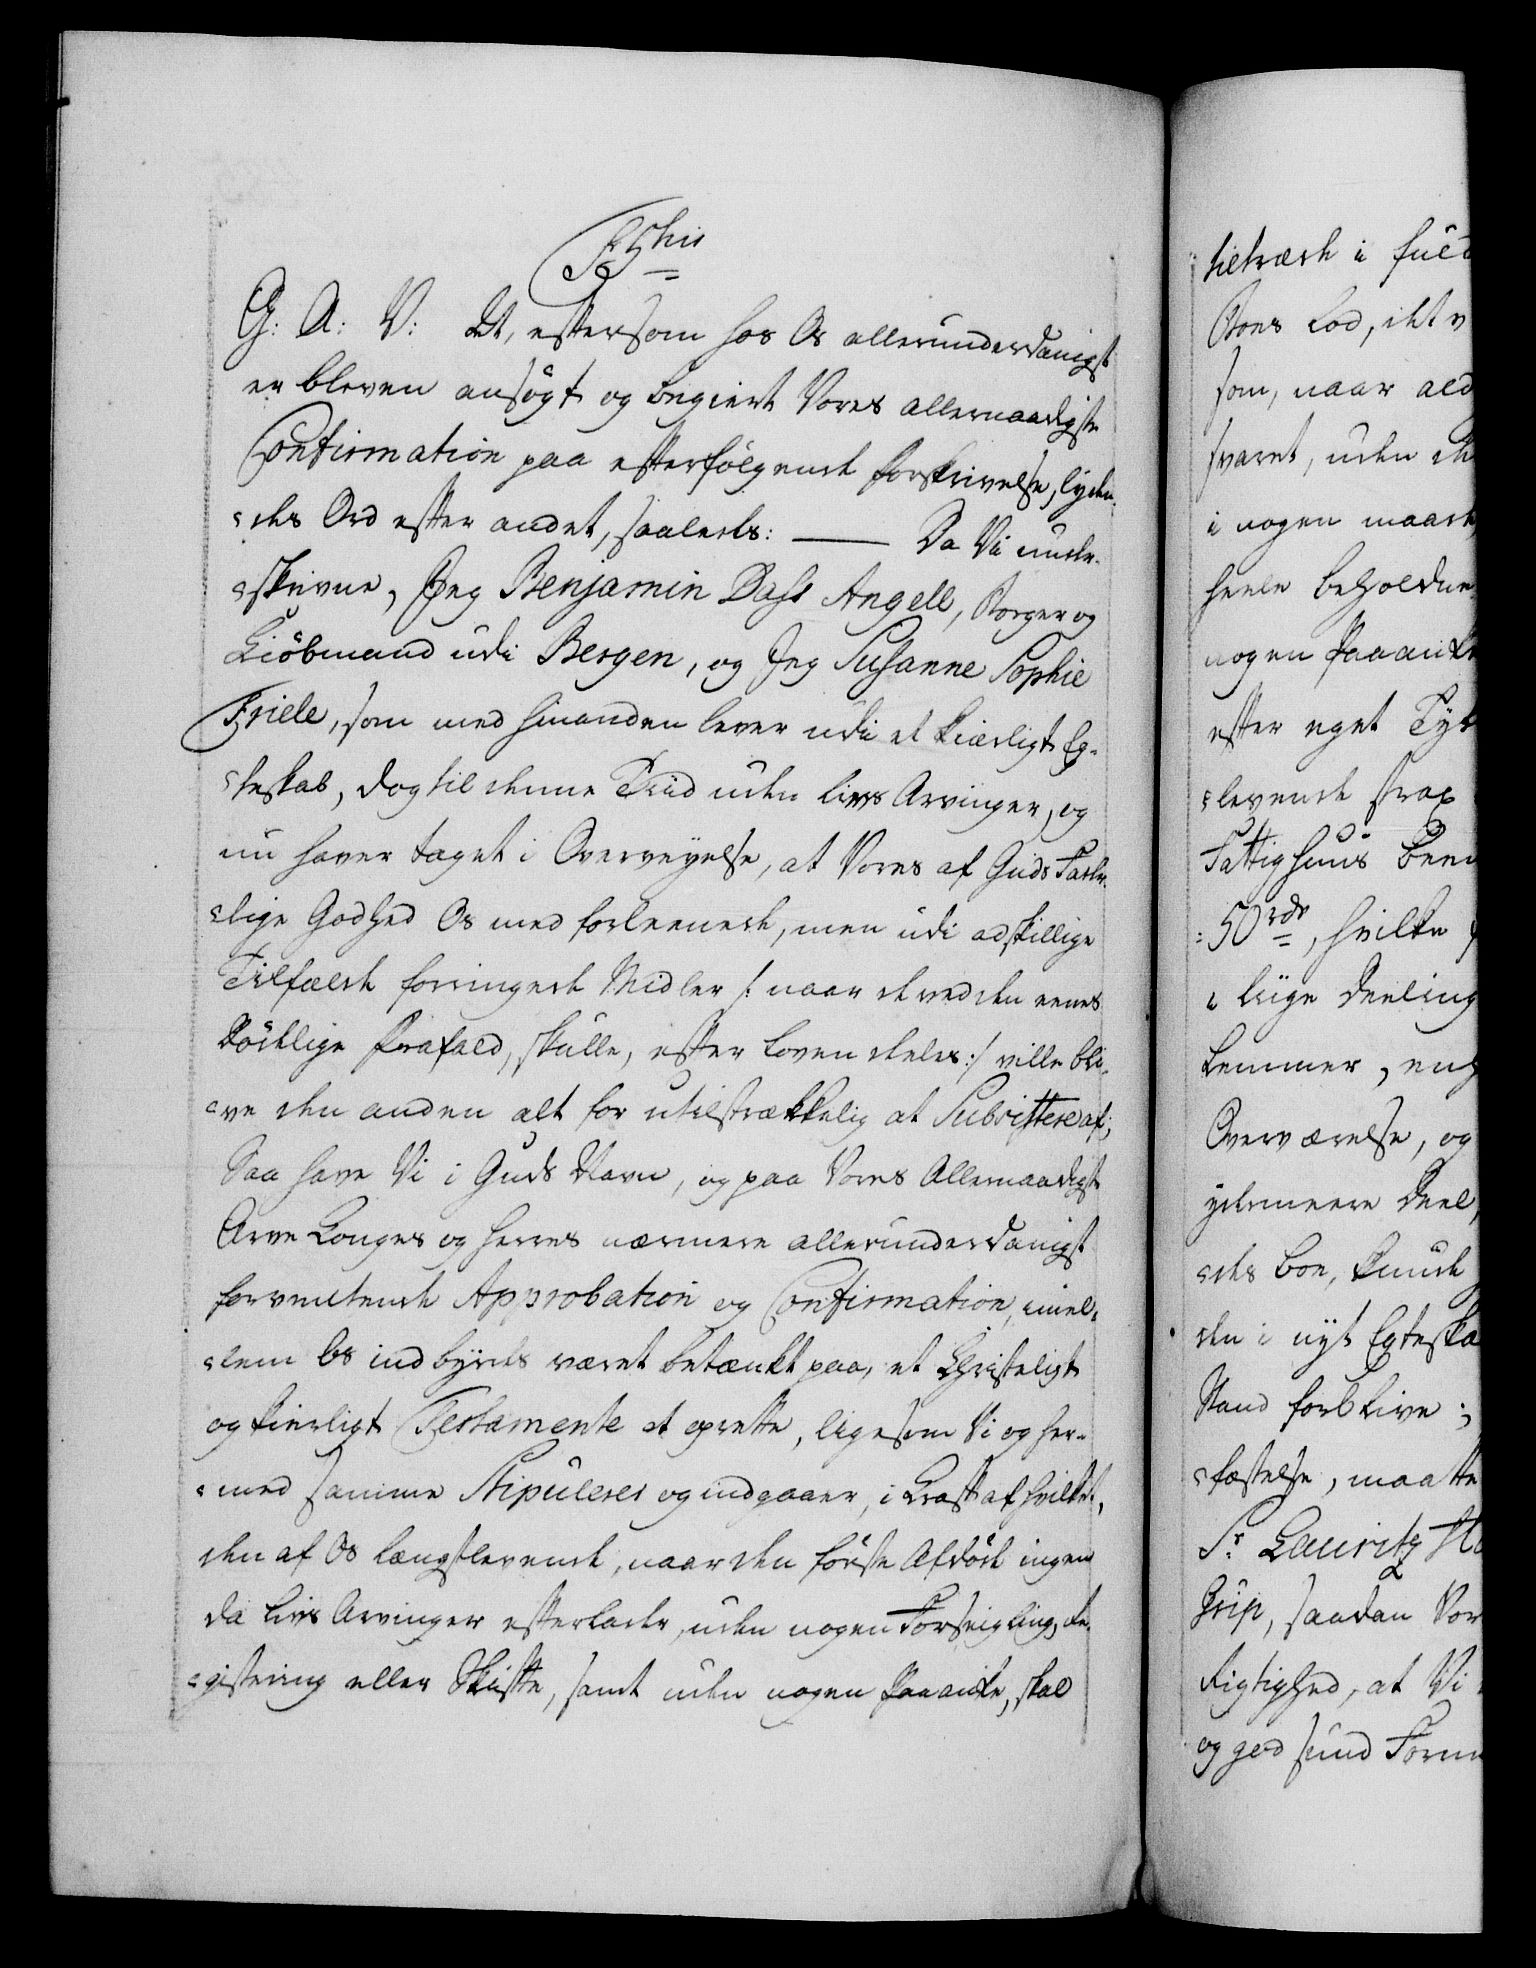 G: A: V: Vt, eftersom hos Os allerunderdanigst
er bleven ansögt og begiert Vores allernaadigste
Confirmation paa efterfölgende forskrivelse, lyden-
=des Ord efter andet, saaledes: — Da Vi unde-
=skrivne, Jeg Benjamin Dass Angell, Borger og
Kiöbmand udi Bergen, og Jeg Susanne Sophie
Friele, som med hinanden lever udi et kiærligt Eg-
=teskab, dog til denne Tiid uden livs Arvinger, og
nu haver taget i Overveyelse, at Vores af Guds Fader-
=lige Godhed Os med forleenede, men udi adskillige
Tilfælde forringede Midler /: naar de ved den eenes
Dödelige frafald, skulle, efter Loven deeles :/ ville bli-
=ve den anden alt for utilstrækkelig at Subsistere af;
Saa have Vi i Guds Navn, og paa Vores Allernaadigste
Arve Konges og Herres nærmere allerunderdanigst
forventende Approbation og Confirmation, imel-
=lem Os indbyrdes været betænkt paa, et Christeligt
og kierligt Testamente at oprette, ligesom Vi og her-
=med samme Stipulerer og indgaaer, i Kraft af hvilket,
den af Os længstlevende, naar den förste Afdöde ingen
da livs Arvinger efterlader, uden nogen Forseigling, Re-
=gistering eller Skifte, samt uden nogen Paaanke, skal
tiltræde i fuld
Boes Lod, det v
som, naar ald
svaret, uden de
i nogen maade,
heele beholdne
nogen Paaanke
efter eget Tyk
=levende strax
Fattighuus Ben
=50 rdr, hvilke
i liige Deeling
kommer, eng
Overværelse, og
ydermeere Deel,
=des Boe, kunde
den i nyt Egteska
Stand forblive;
=fæstelse, maatte
Sr. Lauritz Ho
Grip, saadan Vor
Rigtighed, at Vi
og god sund Fornu